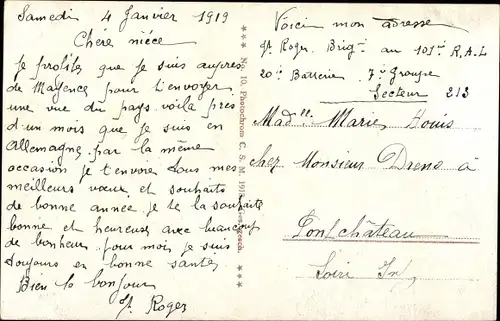 Samedi 4 Janvier 1919
Chère nièce
Je profites que je suis aupres
de Mayence pour t'envoyer
une vue du pays. voilà pres
d'un mois que je suis en
Allemagne par la même
occasion je t'envoie tous mes
meilleurs vœux et souhaits
de bonne année je te la souhaite
bonne et heureuse avec beaucoup
de bonheur pour moi je suis
toujours en bonne santé
Bien le bonjour
Roger
*** No. 10. Photochrom C. S. M. 1915 ***
Voici mon adresse
Roger Brig. au 101e R.A.L
20e Batterie 7e Groupe
Secteur 213
Mad lle Marie Louis
chez Monsieur Dreno à
Pontchâteau
Loire Inf.